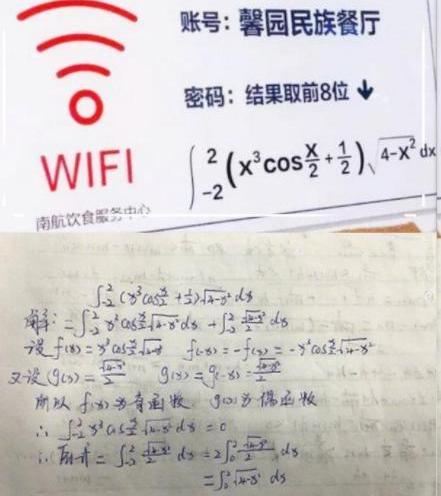 账号：馨园民族餐厅
密码：结果取前8位 ↓
WIFI
∫_{-2}^{2} (x³cos x/2 + 1/2)√(4-x²) dx
南航饮食服务中心
∫_{-2}^{2} (x³cos x/2 + 1/2)√(4-x²) dx
解：= ∫_{-2}^{2} x³cos x/2 √(4-x²) dx + ∫_{-2}^{2} √(4-x²)/2 dx
设 f(x) = x³cos x/2 √(4-x²) f(-x) = -f(x) = -x³cos x/2 √(4-x²)
又设 g(x) = √(4-x²)/2 g(x) = g(-x) = √(4-x²)/2
所以 f(x)为奇函数 g(x)为偶函数
∴ ∫_{-2}^{2} x³cos x/2 √(4-x²) dx = 0
∴ 原式 = ∫_{-2}^{2} √(4-x²)/2 dx = 2∫_{0}^{2} √(4-x²)/2 dx
= ∫_{0}^{2} √(4-x²) dx